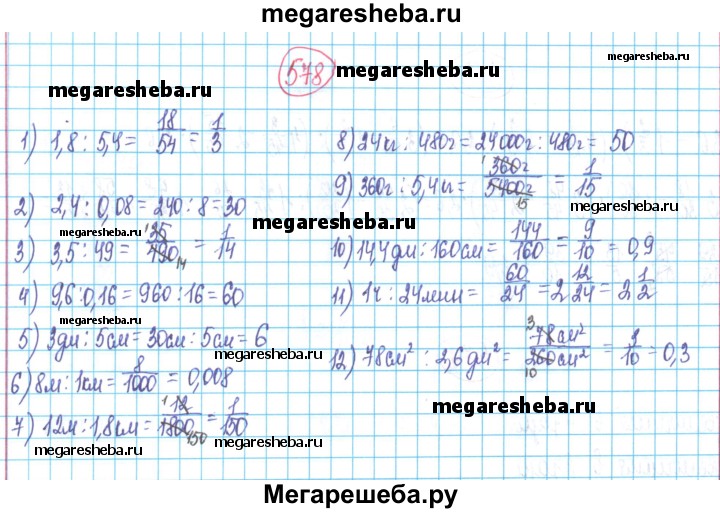 megaresheba.ru
578
megaresheba.ru
megaresheba.ru
megaresheba.ru
1) 1,8 : 5,4 = 18/54 = 1/3
2) 2,4 : 0,08 = 240 : 8 = 30
3) 3,5 : 49 = 35/490 = 1/14
4) 9,6 : 0,16 = 960 : 16 = 60
megaresheba.ru
5) 3дм : 5см = 30см : 5см = 6
6) 8м : 1км = 8/1000 = 0,008
7) 12м : 1,8км = 12/1800 = 1/150
megaresheba.ru
8) 24кг : 480г = 24000г : 480г = 50
9) 360г : 5,4кг = 360г/5400г = 1/15
megaresheba.ru
megaresheba.ru
10) 14,4дм : 160см = 144/160 = 9/10 = 0,9
11) 1ч : 24мин = 60/24 = 2 12/24 = 2 1/2
megaresheba.ru
12) 78см² : 2,6дм² = 78см²/260см² = 3/10 = 0,3
megaresheba.ru
megaresheba.ru
Мегарешеба.ру